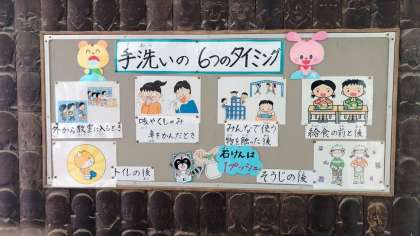 手洗いの 6つのタイミング
外から教室に入るとき
咳やくしゃみ
鼻をかんだとき
みんなで使う
物を触った後
給食の前と後
トイレの後
石けんは
1プッシュ
そうじの後